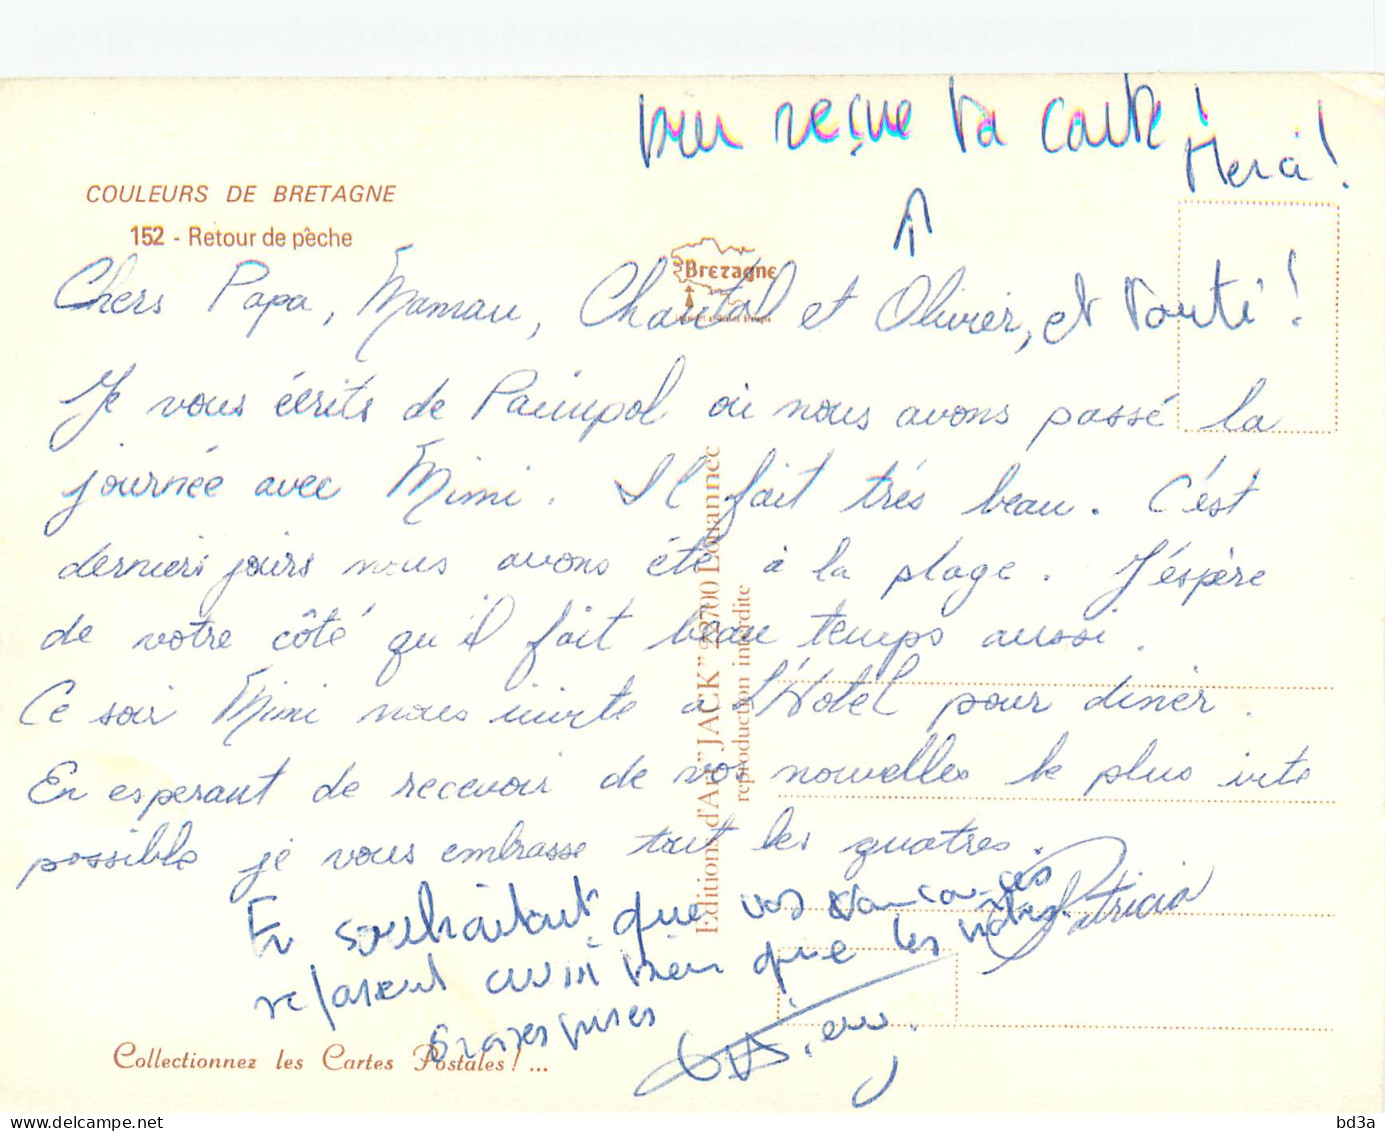 bien reçue ta carte !
Merci !
COULEURS DE BRETAGNE
152 - Retour de pêche
Bretagne
Chers Papa, Maman, Chantal et Olivier, et Tonti !
Je vous écrits de Paimpol où nous avons passé la
journée avec Mimi. Il fait très beau. C'est
derniers jours nous avons été à la plage. J'éspère
de votre côté qu'il fait beau temps aussi.
Ce soir Mimi nous invite à l'Hotel pour dinér.
En esperant de recevoir de vos nouvelles le plus vite
possible je vous embrasse tout les quatres.
Patricia
En souhaitant que vos vacances
se passent aussi bien que les notres.
Grosses bises
Editions d'Art "JACK" 22700 Louannec
reproduction interdite
Collectionnez les Cartes Postales ! ...
delcampe.net
bd3a